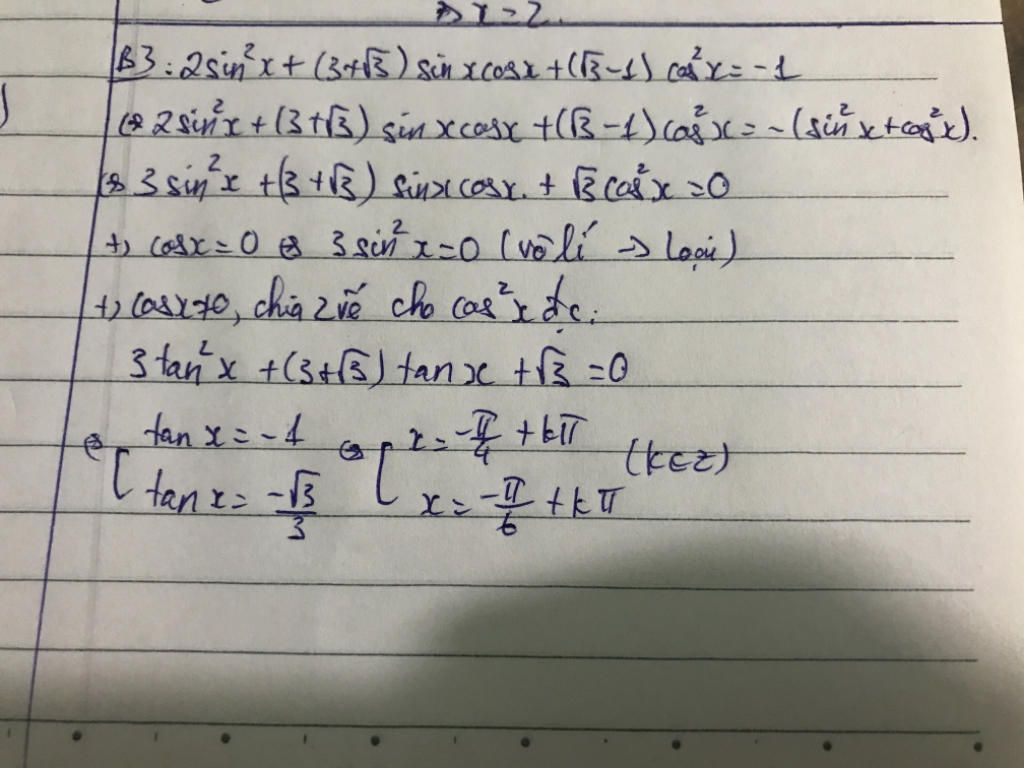 => x = 2.
B3: 2sin²x + (3+√3) sinxcosx + (√3-1) cos²x = -1
<=> 2sin²x + (3+√3) sinxcosx + (√3-1) cos²x = -(sin²x+cos²x).
<=> 3sin²x + (3+√3) sinxcosx. + √3cos²x = 0
+, cosx = 0 <=> 3sin²x = 0 (vô lí → loại)
+, cosx≠0, chia 2 vế cho cos²x đc:
3tan²x + (3+√3) tanx + √3 = 0
<=> [ tan x = -1 <=> [ x = -π/4 + kπ (k∈Z)
tan x = -√3/3 x = -π/6 + kπ